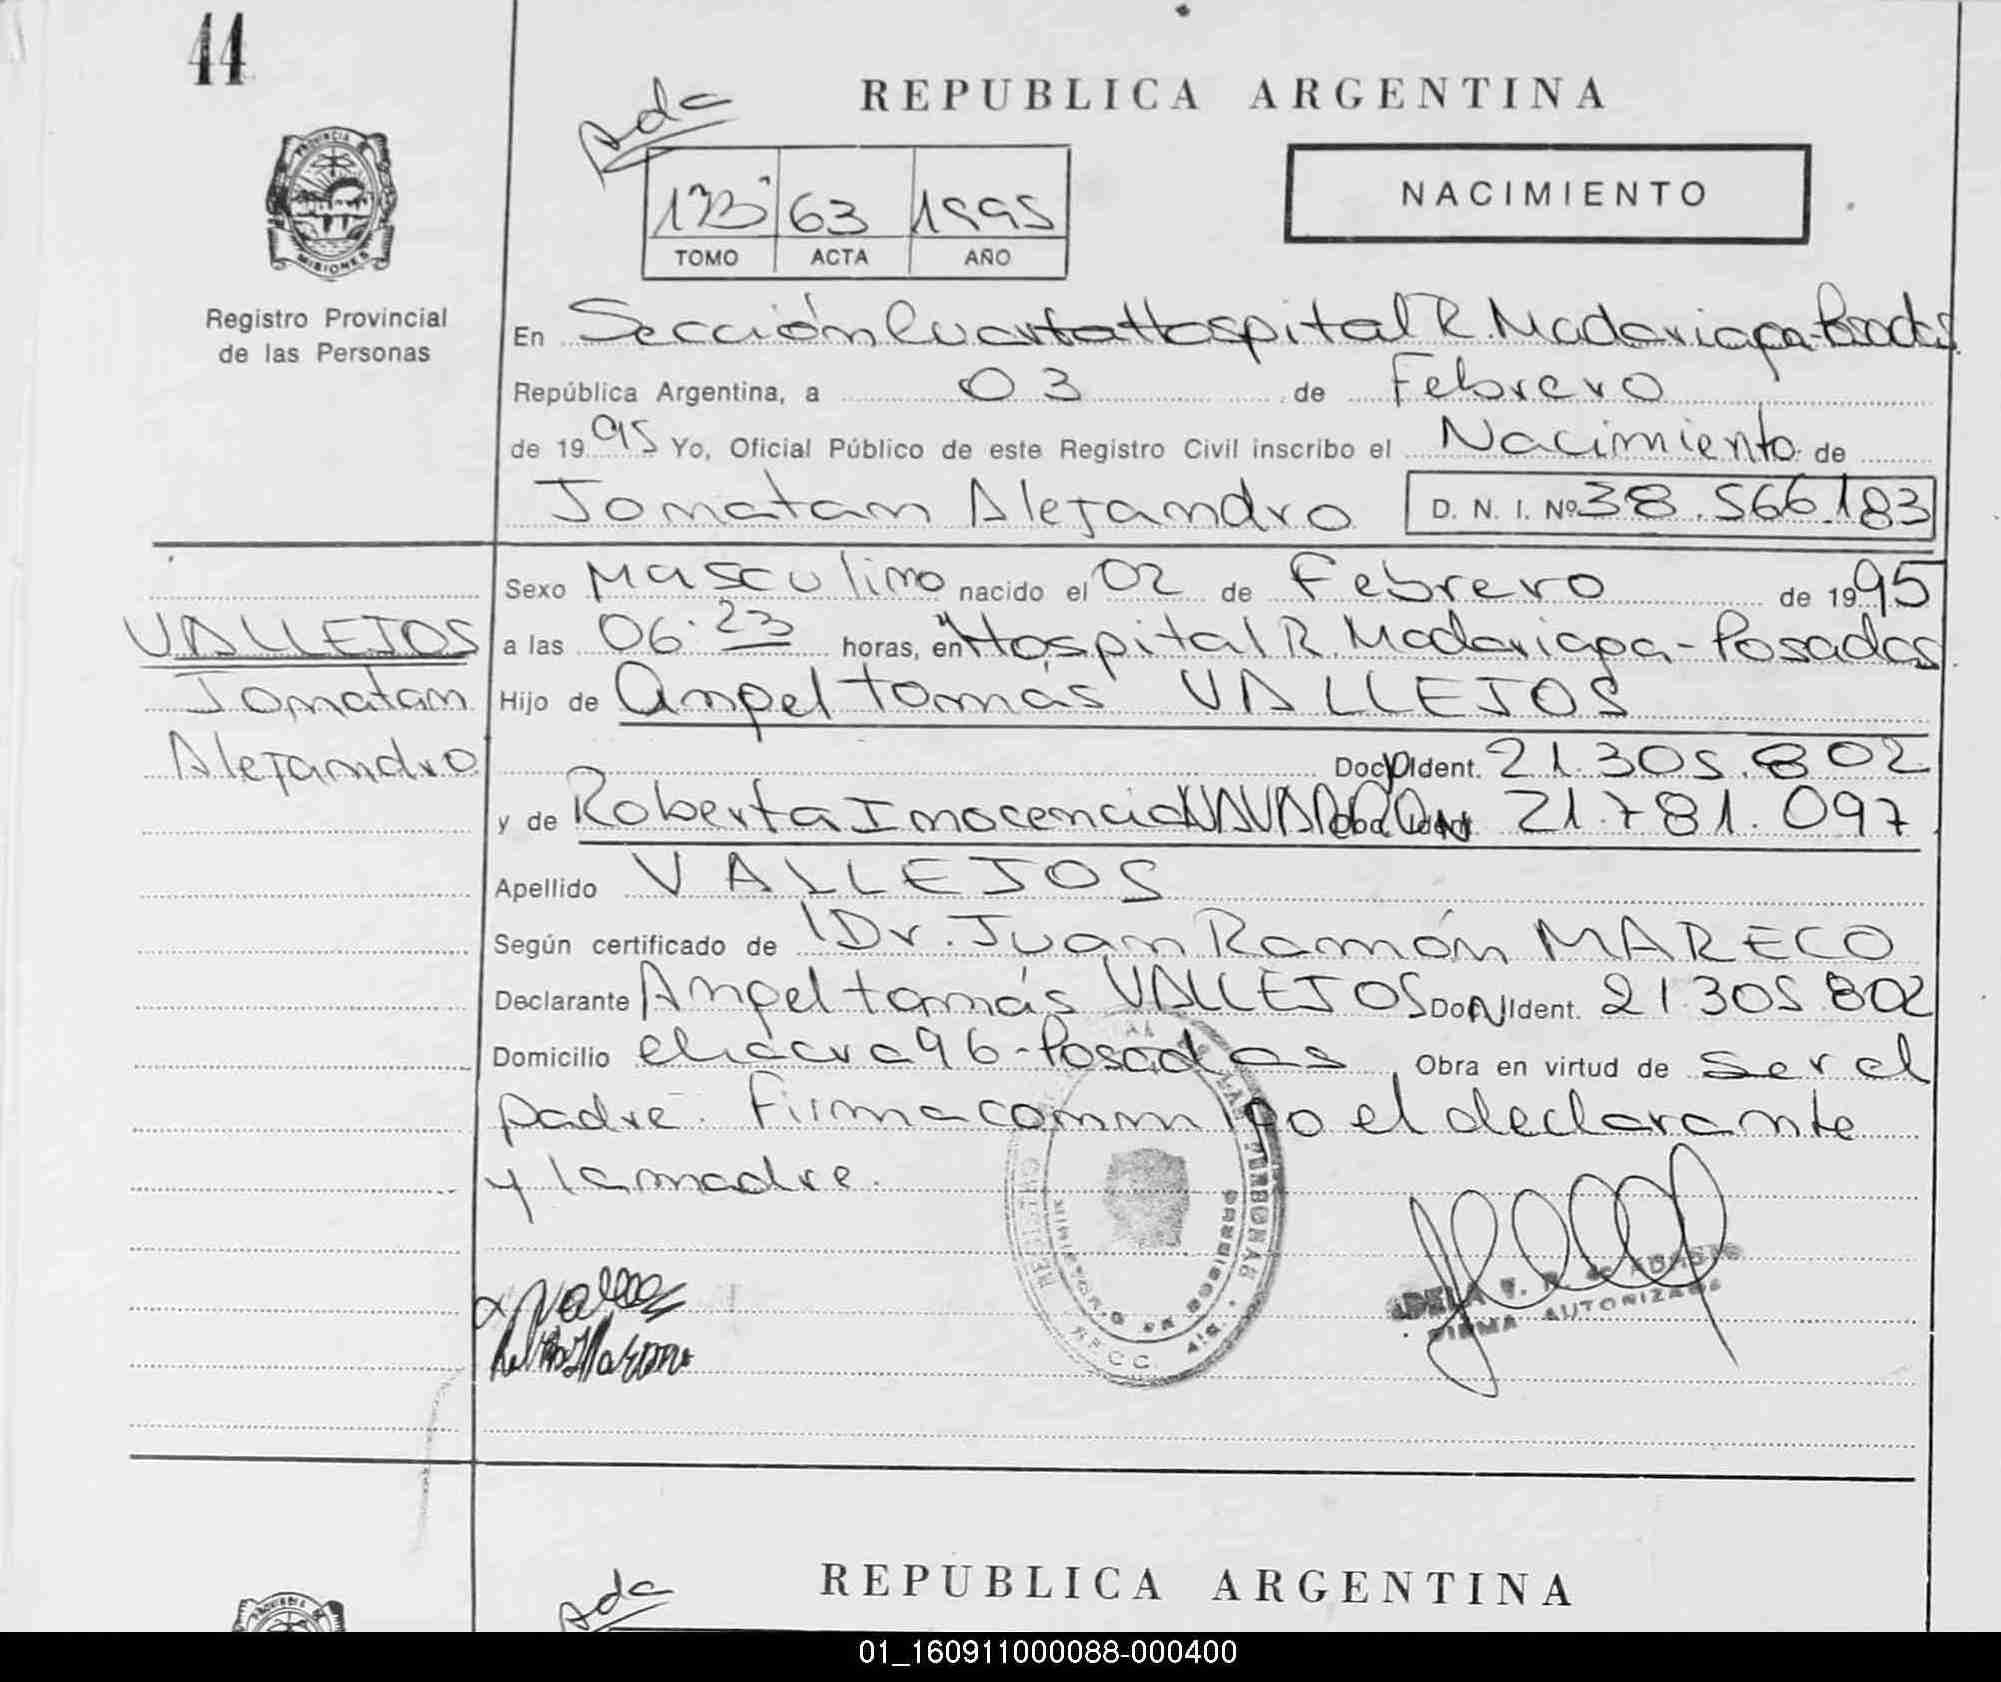 44
REPUBLICA ARGENTINA
Ada
NACIMIENTO
173 63 1995
TOMO ACTA AÑO
PROVINCIA DE MISIONES
Registro Provincial
de las Personas
En Sección Cuarta Hospital R. Madariaga-Posadas
República Argentina, a 03 de Febrero
de 1995 Yo, Oficial Público de este Registro Civil inscribo el Nacimiento de
Jonatan Alejandro D. N. I. Nº 38.566.183
Sexo Masculino nacido el 02 de Febrero de 1995
VALLEJOS a las 06:23 horas, en Hospital R. Madariaga-Posadas
Jonatan Hijo de Angel tomás VALLEJOS
Alejandro Doc. Ident. 21.305.802
y de Roberta Inocencia 21.781.097
Apellido VALLEJOS
Según certificado de Dr. Juan Ramón MARECO
Declarante Angel tomás VALLEJOS Doc. Ident. 21.305.802
Domicilio chacra 96-Posadas Obra en virtud de ser el
padre. Firma conmigo el declarante
y la madre.
DE LAS PERSONAS
FIRMA AUTORIZADA
REPUBLICA ARGENTINA
Ada
01_160911000088-000400